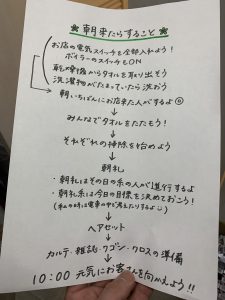 ★ 朝来たらすること ★
お店の電気スイッチを全部入れよう!
ボイラーのスイッチもON
乾燥機からタオルを取り出そう
洗濯物がたまっていたら洗おう
朝いちばんにお店来た人がするよ
↓
みんなでタオルをたたもう!
↓
それぞれの掃除を始めよう
↓
朝礼
・朝礼はその日の系の人が進行するよ
・朝礼系は今日の目標を決めておこう!
(私の時は電車の中で考えたりするよ)
↓
ヘアセット
↓
カルテ・雑誌・ワゴン・クロスの準備
10:00 元気にお客さんを向かえよう!!